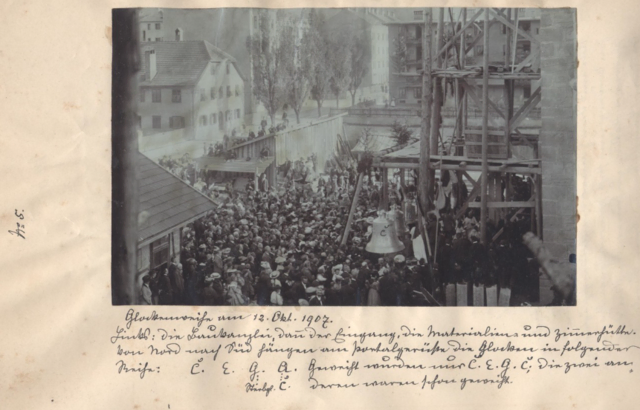 No 5.
Glockenweihe am 12. Okt. 1907.
Links: die Baukanzlei, dann der Eingang, die Materialien- und Zimmerhütte.
Von Nord nach Süd hängen am Portalgerüste die Glocken in folgender
Reihe: C. E. G. A. Geweiht wurden nur C. E. G. C, die zwei an-
C. deren waren schon geweiht.